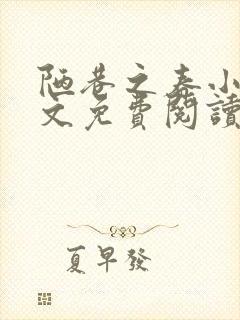 陋巷之春小
文免費閱讀
夏早發